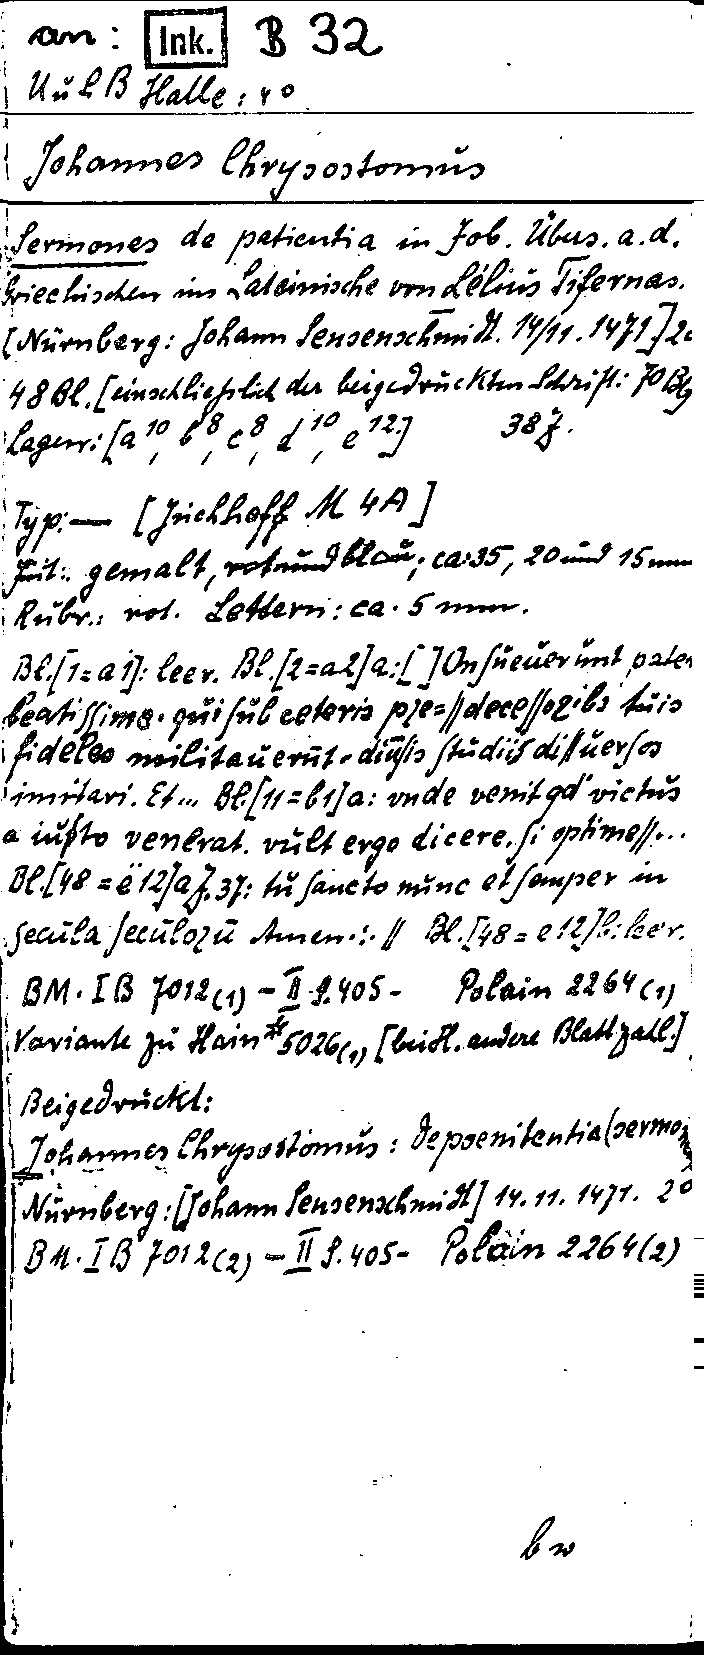 an: Ink. B 32
UuLB Halle: 4°
Johannes Chrysostomus
Sermones de patientia in Job. Übers. a. d.
Griechischen ins Lateinische von Lélius Tifernas.
[Nürnberg: Johann Sensenschmidt. 14/11. 1471.] 2°
48 Bl. [einschließlich der beigedruckten Schrift: 70 Bl.]
Lagen: [a10, b8, c8, d10, e12.] 38 Z.
Typ: — [Juchhoff M 4A]
Init.: gemalt, rot und blau; ca. 35, 20 und 15 mm
Rubr.: rot. Lettern: ca. 5 mm.
Bl. [1=a1]: leer. Bl. [2=a2]a: [ ]Onſueuerunt pater
beatiſſime. qui ſub ceteris pre=//deceſſoribꝰ tuis
fideles militauerūt. diūſis ſtudiis di//uerſos
imitari. Et... Bl. [11=b1]a: vnde venit qd' victus
a iuſto venerat. vult ergo dicere. ſi optime//...
Bl. [48=e12]a Z. 37: tu ſancto nunc et ſemper in
ſecula ſeculorū Amen.:. // Bl. [48=e12]b: leer.
BM. IB 7012(1) – II S. 405 – Polain 2264(1)
Variante zu Hain *5026(1) [bei H. andere Blattzahl.]
Beigedruckt:
Johannes Chrysostomus: de poenitentia (sermones
Nürnberg: [Johann Sensenschmidt] 14. 11. 1471. 2°
BM. IB 7012(2) – II S. 405 – Polain 2264(2)